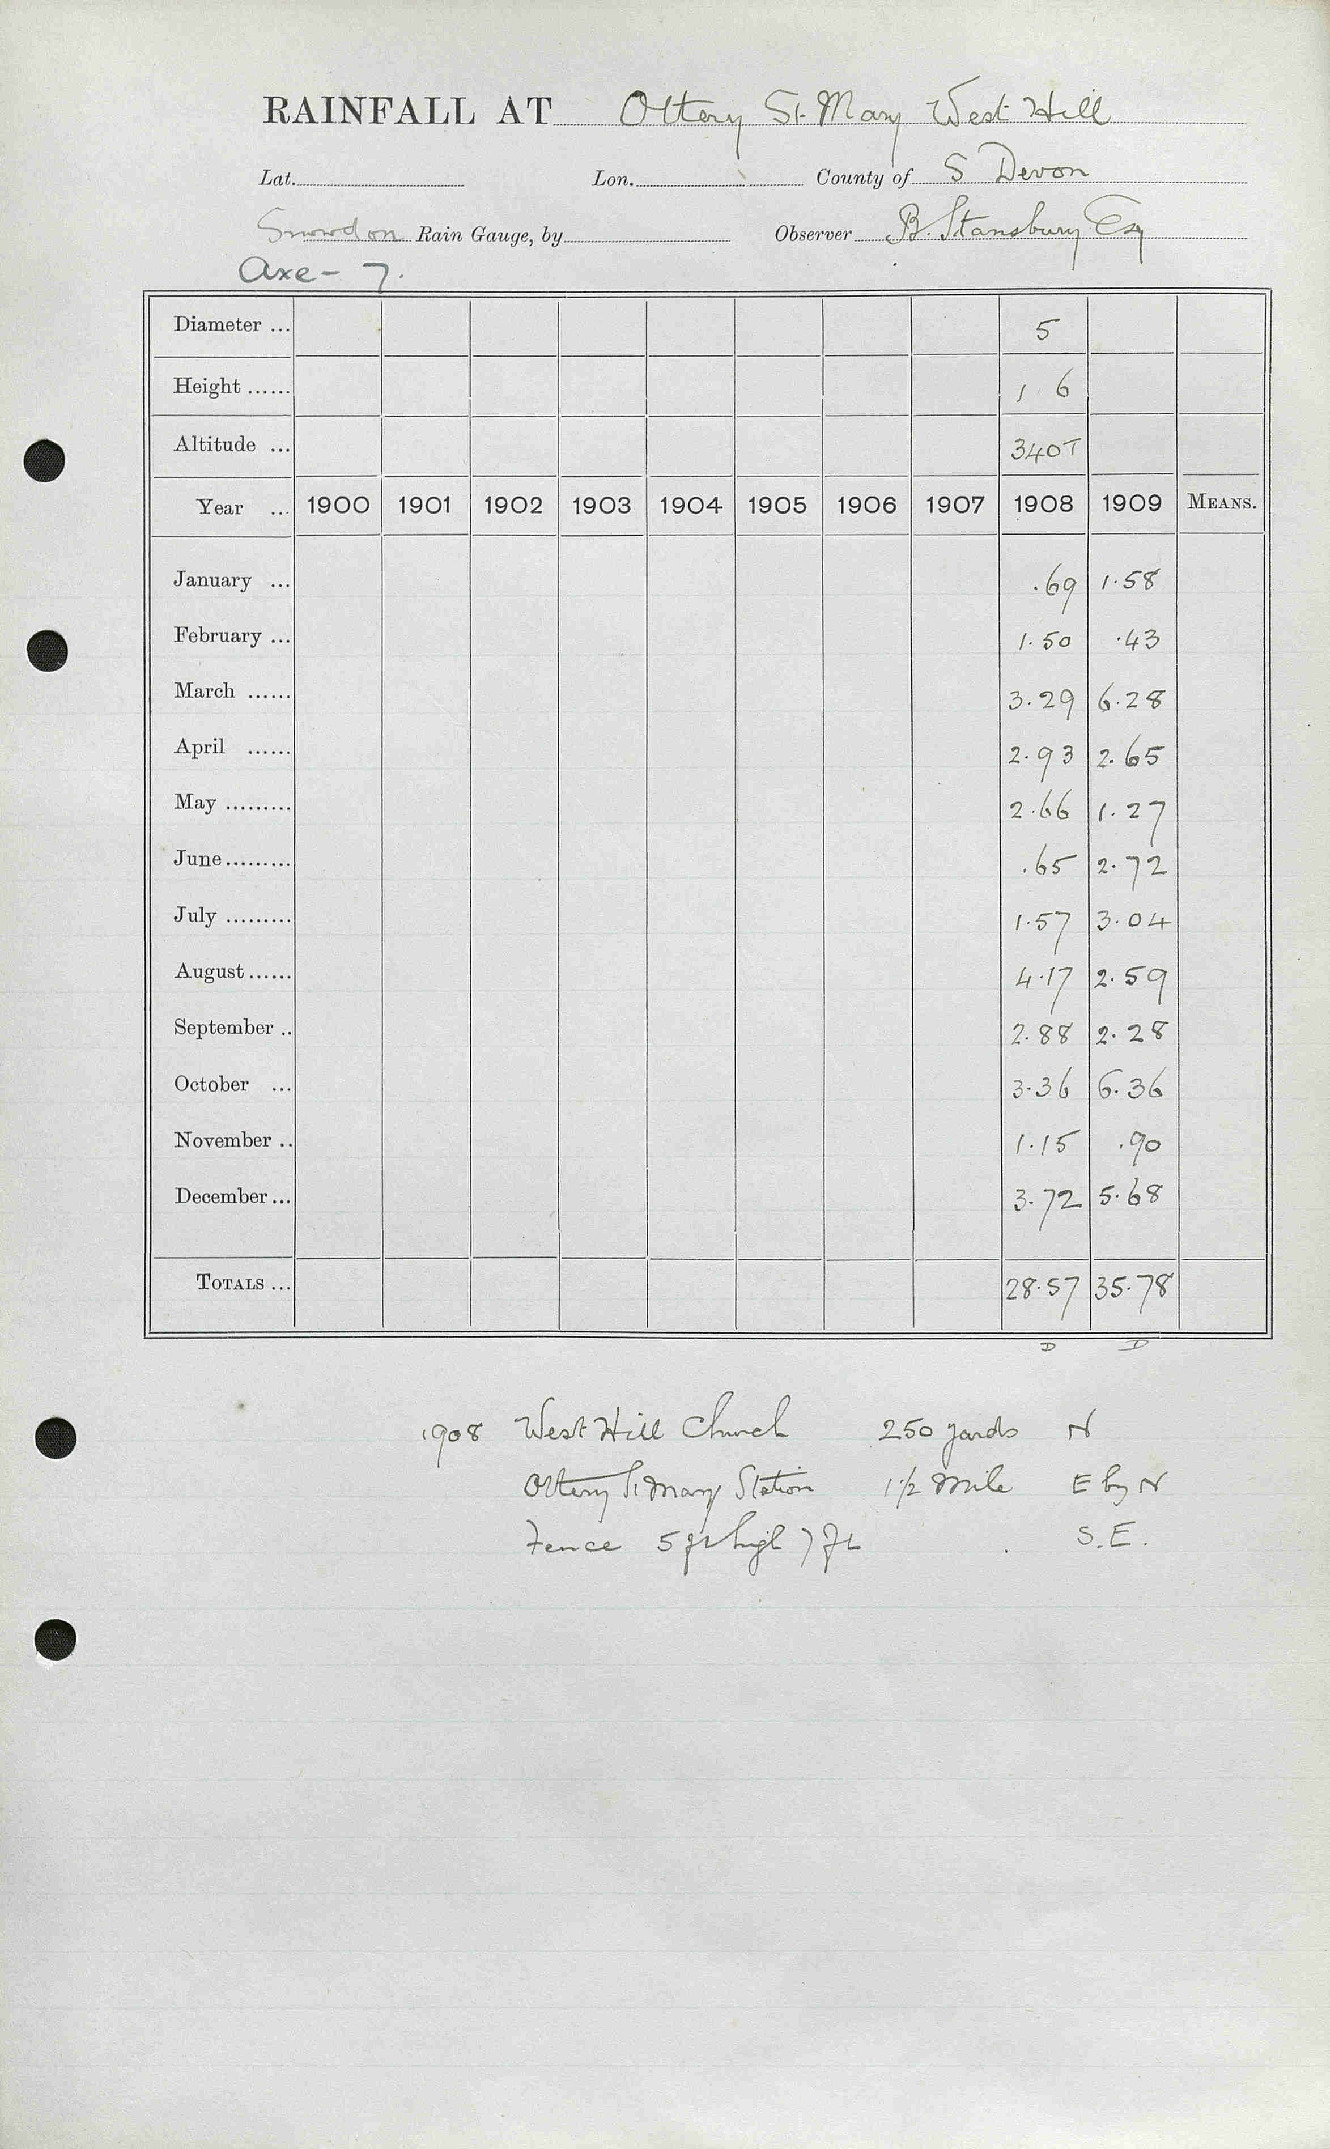 RAINFALL AT Ottery St. Mary West Hill
Lat. Lon. County of S Devon
Snowdon Rain Gauge, by Observer B. Stansbury Esq
Axe - 7.
Diameter ... 5
Height ...... 1 6
Altitude ... 340T
Year ... 1900 1901 1902 1903 1904 1905 1906 1907 1908 1909 MEANS.
January ... .69 1.58
February ... 1.50 .43
March ...... 3.29 6.28
April ...... 2.93 2.65
May ......... 2.66 1.27
June ......... .65 2.72
July ......... 1.57 3.04
August ...... 4.17 2.59
September .. 2.88 2.28
October ... 3.36 6.36
November .. 1.15 .90
December ... 3.72 5.68
TOTALS ... 28.57 35.78
D D
1908 West Hill Church 250 yards N
Ottery St Mary Station 1 1/2 Mile E by N
Fence 5 ft high 7 ft S.E.